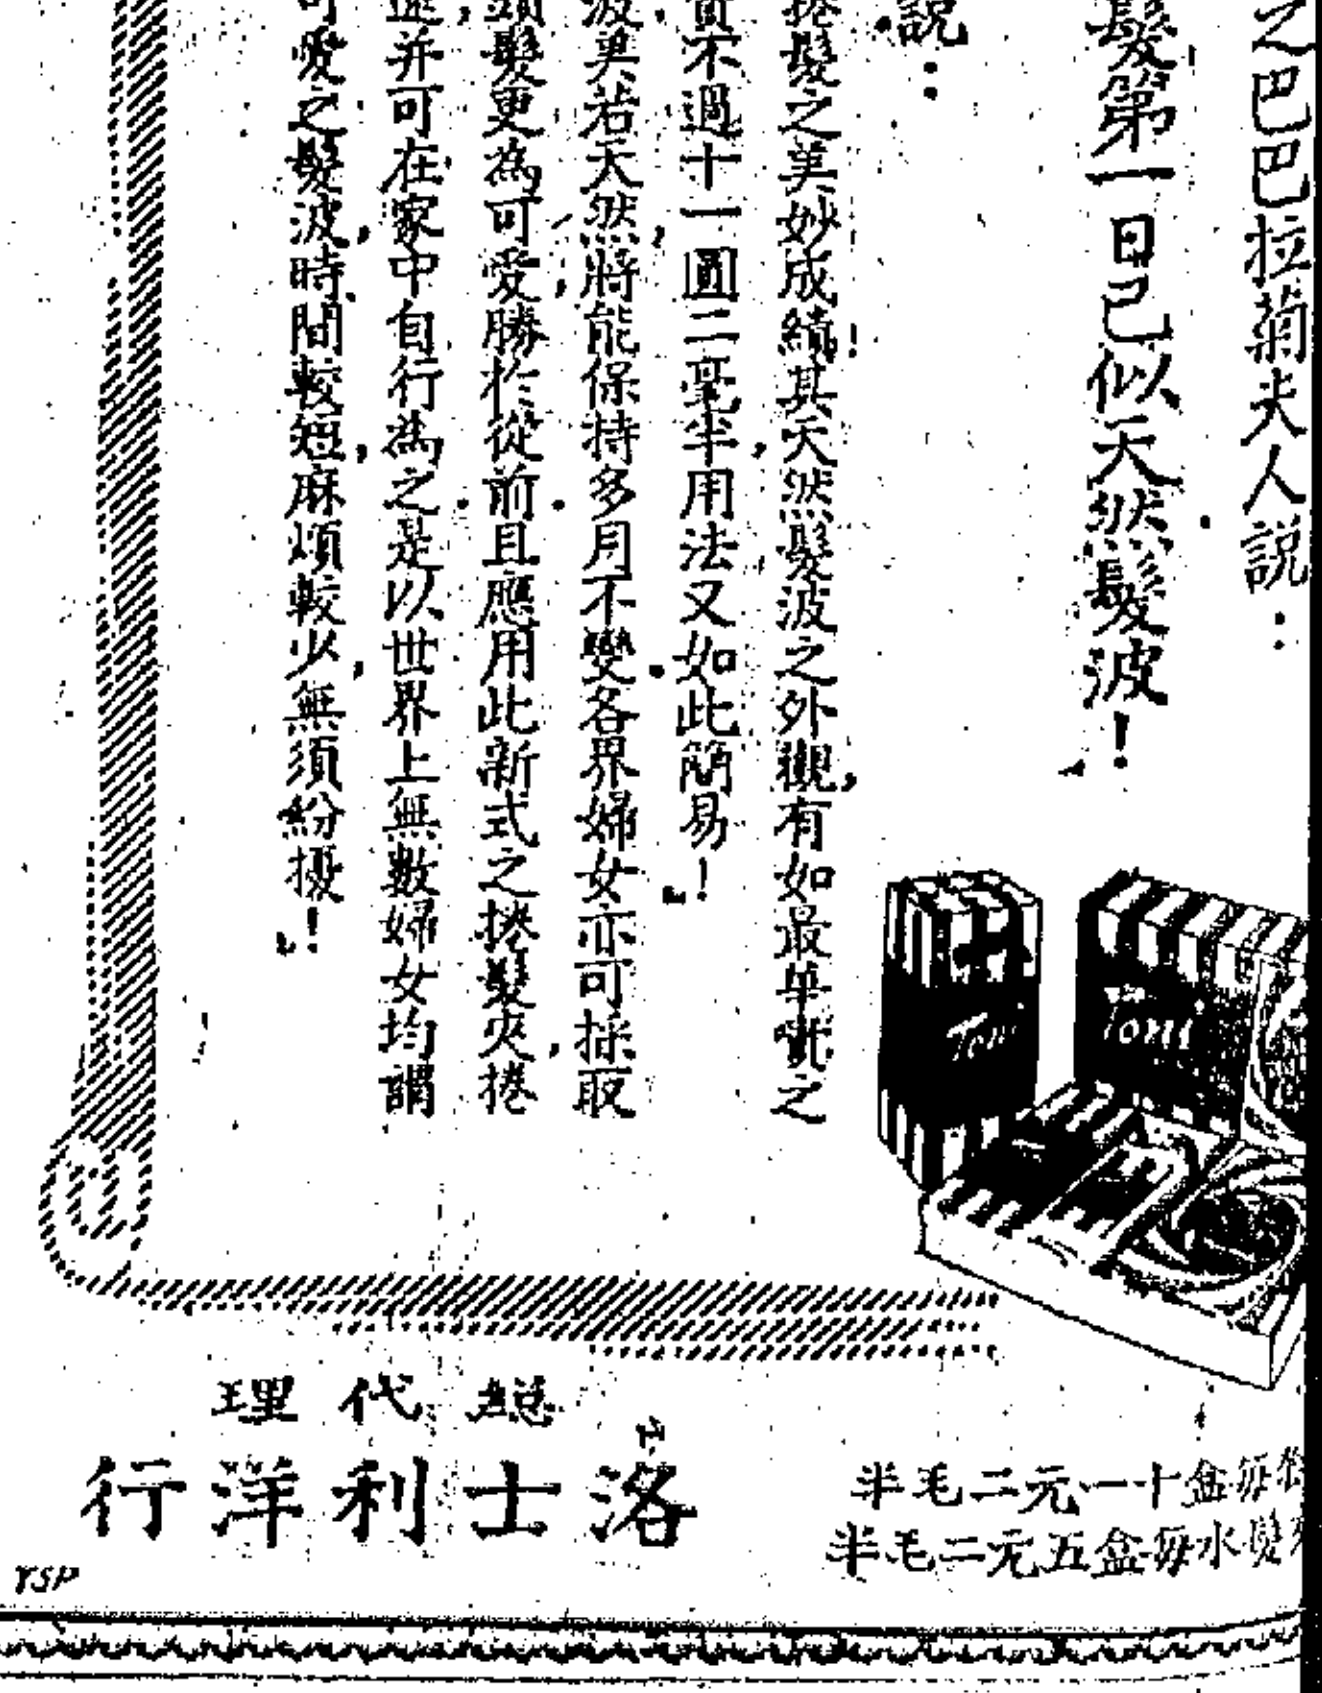 之巴巴拉菊夫人説：
髮第一日己似天然髮波！
説：
捲髮之美妙成績！其天然髮波之外觀，有如最華貴之
費不過十一圓二毫半，用法又如此簡易！
波異若天然，將能保持多月不變。各界婦女亦可採取
頭髮更為可愛，勝於從前。且應用此新式之捲髮夾，捲
速，并可在家中自行為之。是以世界上無數婦女均謂
可愛之髮波，時間較短，麻煩較少，無須紛擾！
Toni
Toni
總代理
洛士利洋行
每盒十一元二毛半
髮水每盒五元二毛半
YSP